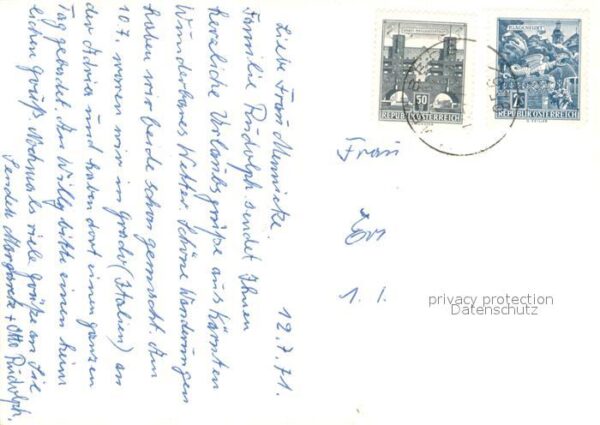 12.7.71.
Liebe Frau Mennicke.
Familie Rudolph sendet Ihnen
herzliche Urlaubsgrüße aus Kärnten
Wunderbares Wetter. Schöne Wanderungen
haben wir beide schon gemacht. Am
10.7. waren wir in Grado (Italien) an
der Adria und haben dort einen ganzen
Tag gebadet. An Willy bitte einen
lichen Gruß. Nochmals viele Grüße an Sie
Senden Margarete + Otto Rudolph.
50 g
REPUBLIK ÖSTERREICH
KLAGENFURT
2 S
REPUBLIK ÖSTERREICH
Frau
1. I.
privacy protection
Datenschutz